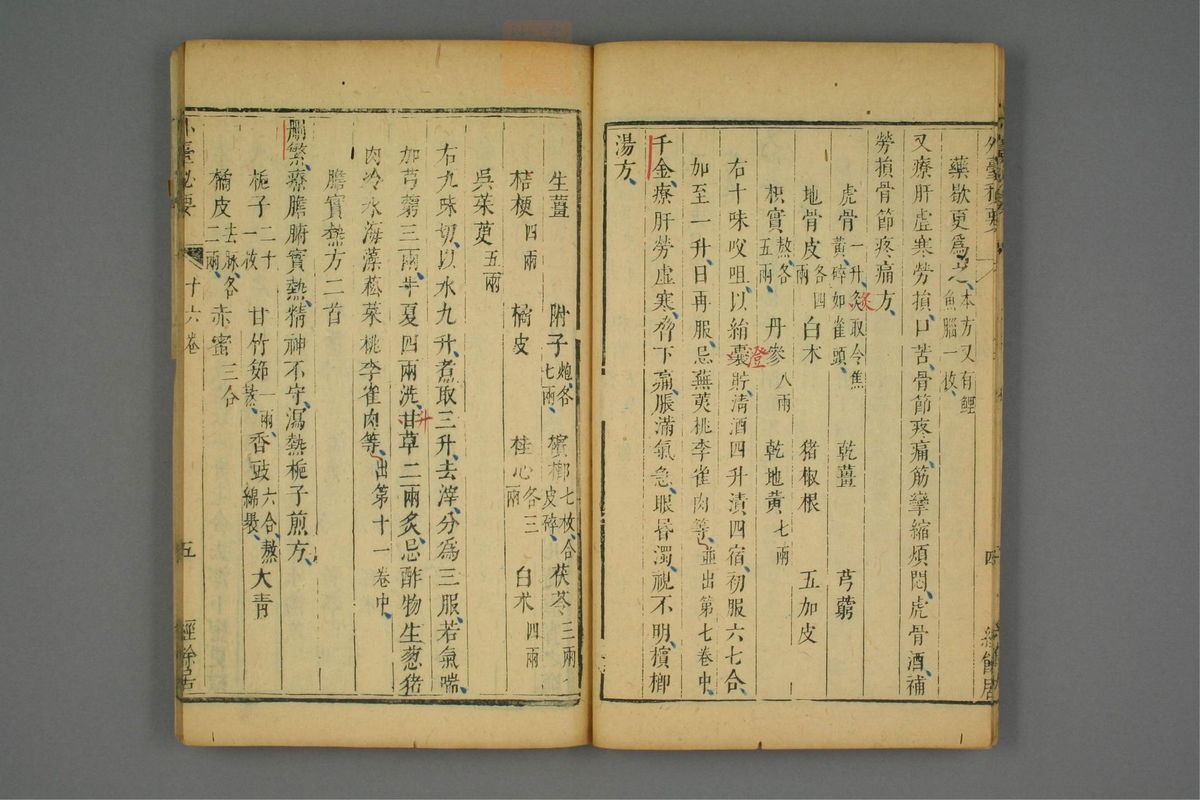 藥歇更爲之本方又有鯉魚腦一枚
又療肝虛寒勞損口苦骨節疼痛筋攣縮煩悶虎骨酒補
勞損骨節疼痛方
虎骨一升炙取令焦黃碎如雀頭 乾薑 芎藭
地骨皮各四兩 白朮 猪椒根 五加皮
枳實熬各五兩 丹參八兩 乾地黃七兩
右十味㕮咀以絹囊貯清酒四升漬四宿初服六七合
加至一升日再服忌蕪荑桃李雀肉等並出第七卷中
千金療肝勞虛寒脅下痛脹滿氣急眼昬濁視不明檳榔
湯方
生薑 附子炮各七兩 檳榔七枚合皮碎 茯苓三兩
桔梗四兩 橘皮 桂心各三兩 白朮四兩
吳茱萸五兩
右九味切以水九升煮取三升去滓分爲三服若氣喘
加芎藭三兩半夏四兩洗甘草二兩炙忌酢物生葱猪
肉冷水海藻菘菜桃李雀肉等出第十一卷中
膽實熱方二首
刪繁療膽腑實熱精神不守瀉熱梔子煎方
梔子二十一枚 甘竹茹一兩熬 香豉六合熬綿裹 大青
橘皮去脉各二兩 赤蜜三合
外臺秘要 十六卷 五 經餘居